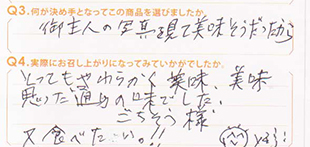 Q3. 何が決め手となってこの商品を選びましたか。
御主人の写真を現て美味そうだったから
Q4. 実際にお召し上がりになってみていかがでしたか。
とってもやわらかく美味、美味
思った通りの味でした。
ごちそう様
又食べたいっ!!